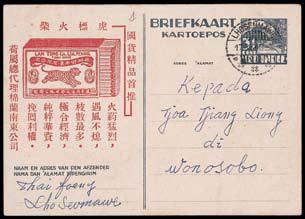 虎標火柴
LAM TONG Co. LHO SEUMAWE
國貨精品首推
火葯猛烈，
遇風不熄，
枝數最多，
極合經濟，
純粹華資，
挽囘利權。
荷屬總代理棉蘭南東公司
NAAM EN ADRES VAN DEN AFZENDER
NAMA DAN ALAMAT PENGIRIM
Thai Foeng
Lho Seumawe
BRIEFKAART
KARTOEPOS
ADRES ALAMAT
NED. INDIE
Kepada
Tjoa Tjiang Liong
di
Wonosobo